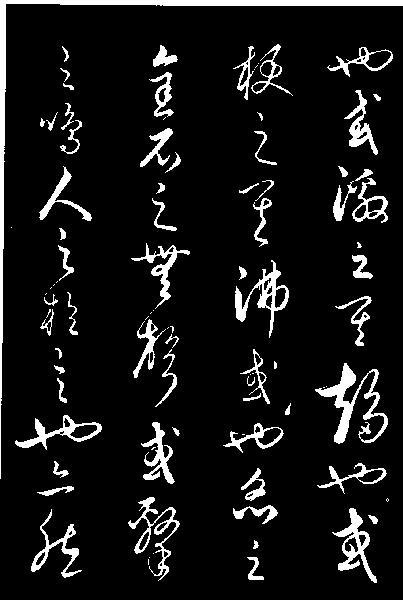 也或激之其趨也或
梗之其沸或也炙之
金石之無聲或擊
之鳴人之於言也亦然